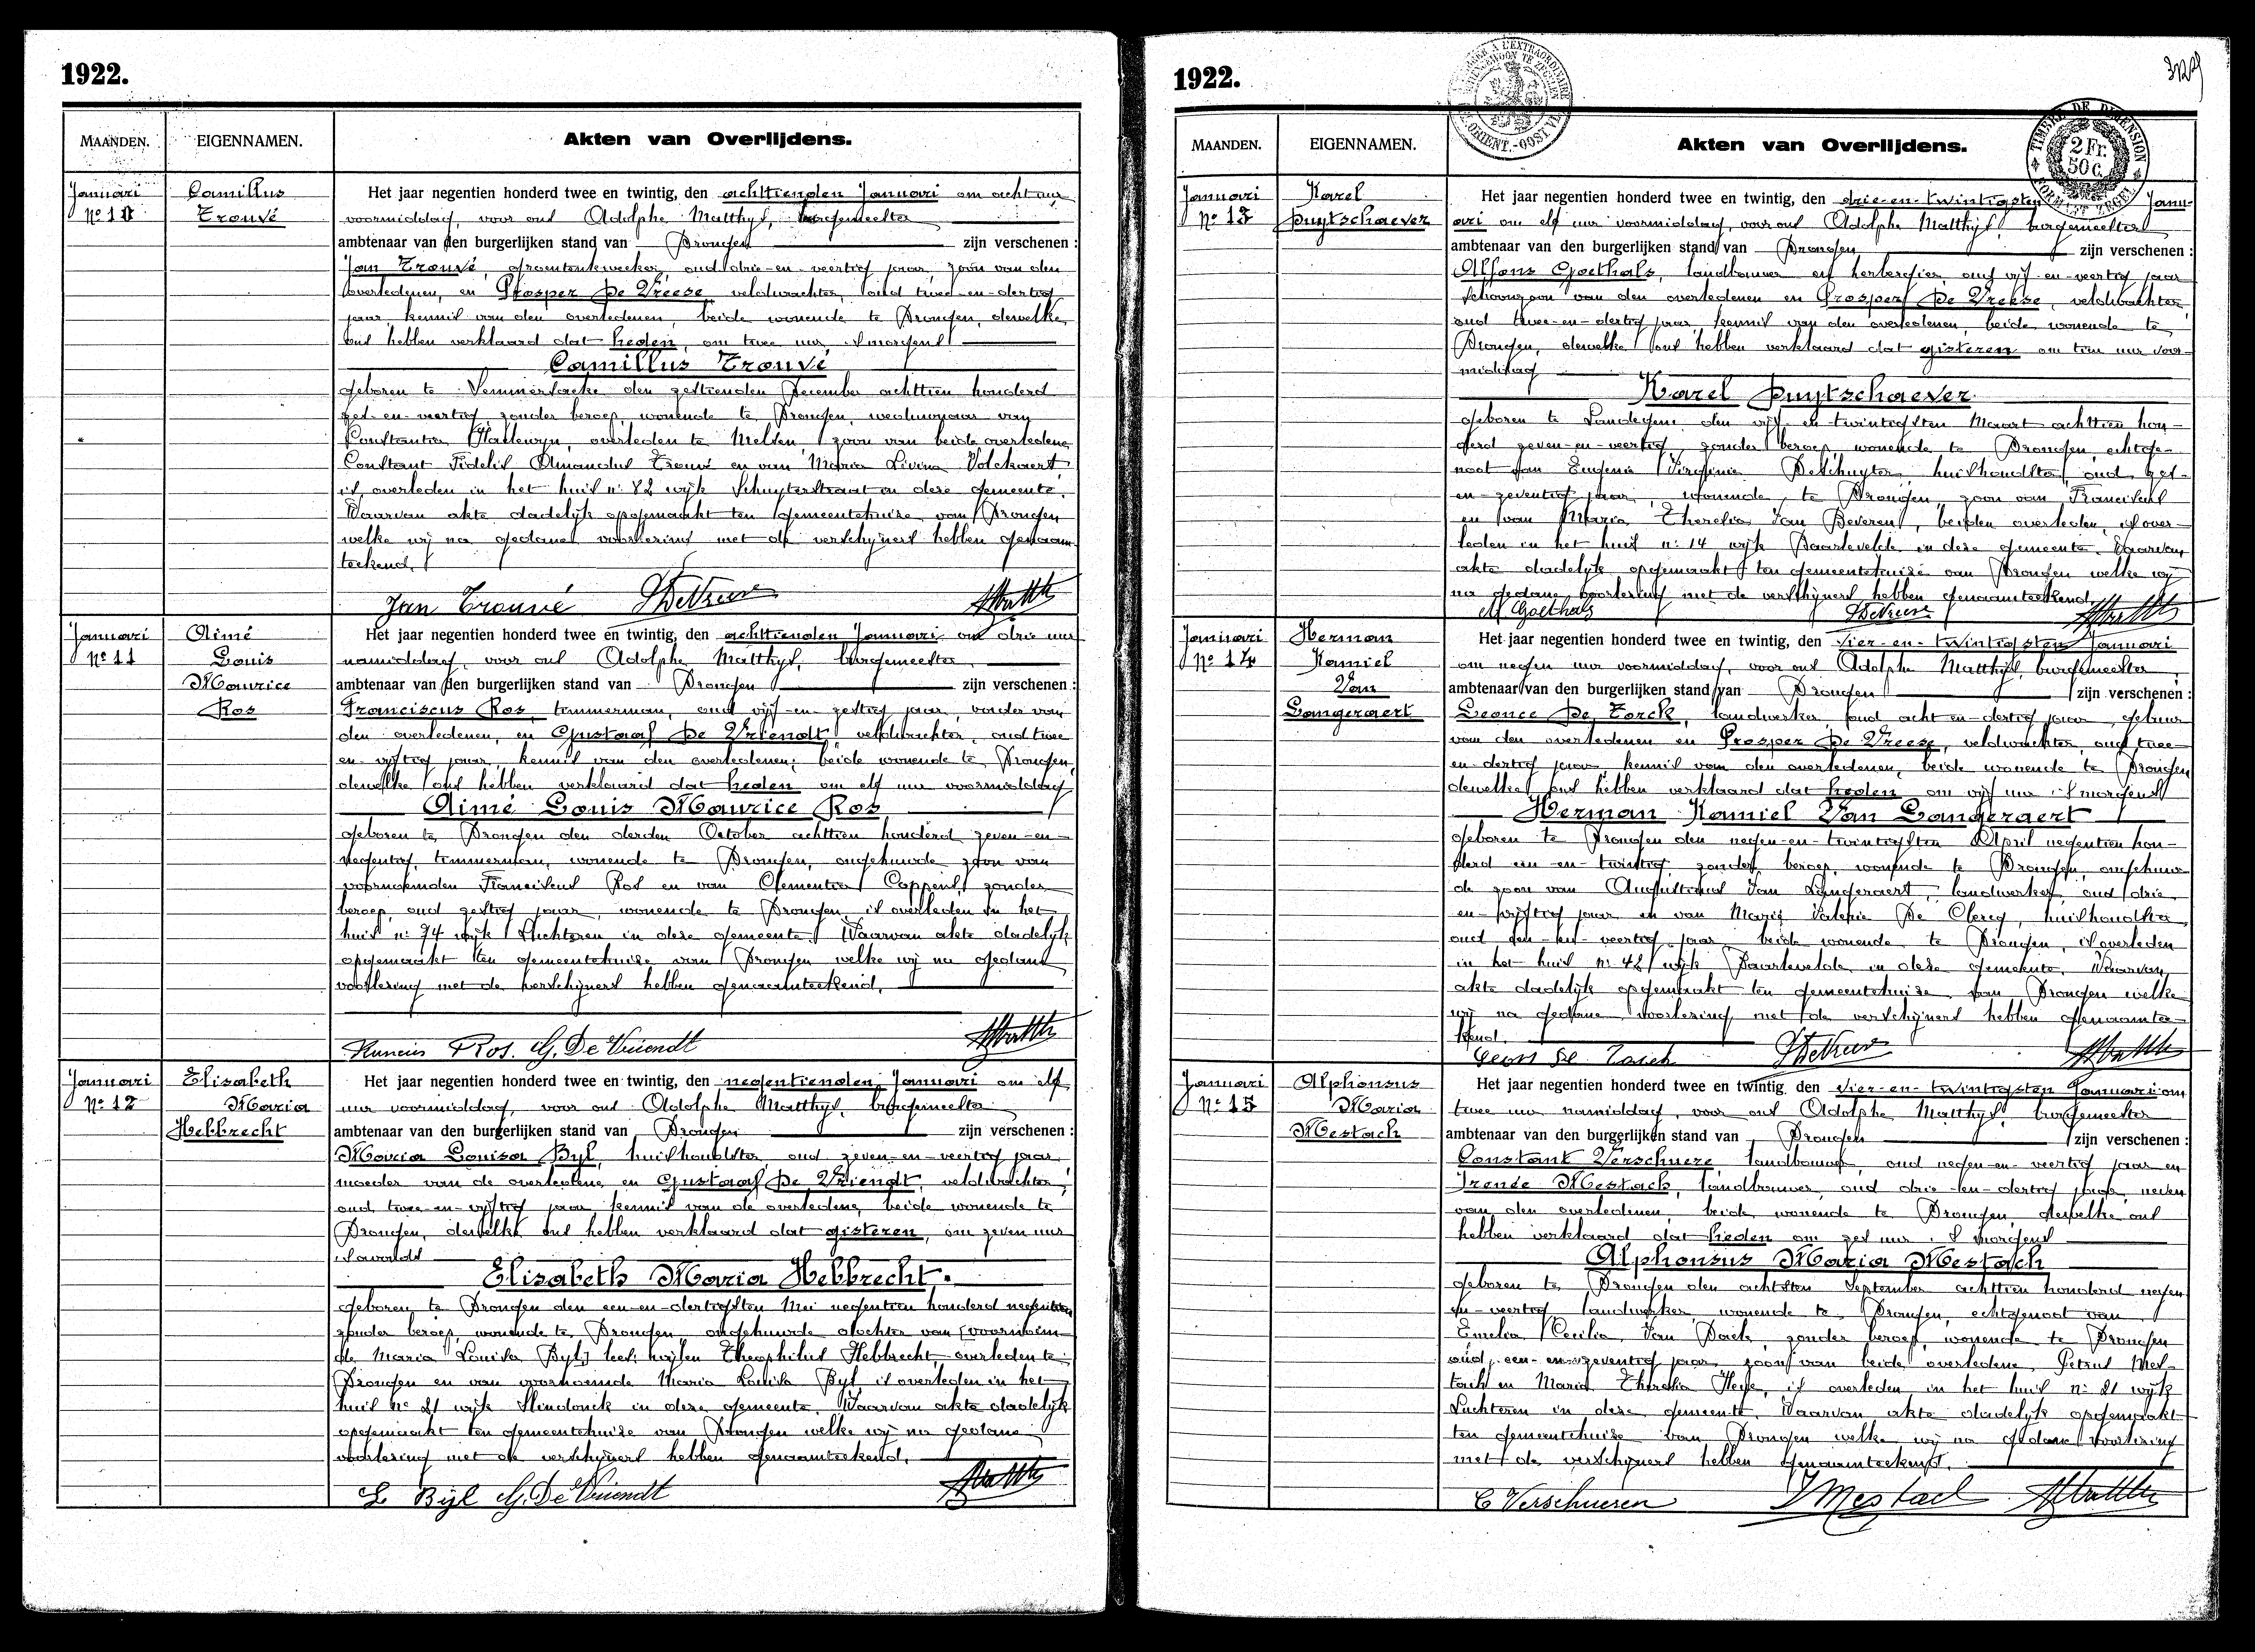 1922.
MAANDEN. EIGENNAMEN. Akten van Overlijdens.
Januari
Nº 10
Camillus
Trouvé
Het jaar negentien honderd twee en twintig, den achttienden Januari om acht uur
voormiddag, voor ons Adolphe Matthys, burgemeester
ambtenaar van den burgerlijken stand van Drongen zijn verschenen :
Jan Trouvé, groentenkweeker, oud drie-en-veertig jaar, zoon van den
overledenen, en Prosper De Vreese, veldwachter, oud twee-en-dertig
jaar, kennis van den overledenen, beide wonende te Drongen, dewelke
ons hebben verklaard dat heden, om twee uur, 's morgens
Camillus Trouvé
geboren te den zestienden December achttien honderd
zes-en-veertig, zonder beroep, wonende te Drongen, weduwnaar van
Constantia Hallewyn, overleden te Melden, zoon van beide overledene
Constant Fidelis Amandus Trouvé en van Maria Livina Volckaert,
is overleden in het huis nº 82 wijk Schuyterstraat in deze gemeente.
Waarvan akte dadelijk opgemaakt ten gemeentehuize van Drongen
welke wij na gedane voorlezing met de verschijners hebben genaam-
teekend.
Jan Trouvé
Januari
Nº 11
Aimé
Louis
Maurice
Ros
Het jaar negentien honderd twee en twintig, den achttienden Januari om drie uur
namiddag, voor ons Adolphe Matthys, burgemeester,
ambtenaar van den burgerlijken stand van Drongen zijn verschenen :
Franciscus Ros, timmerman, oud vijf-en-zestig jaar, vader van
den overledenen, en Gustaaf De Vriendt, veldwachter, oud twee
en-vijftig jaar, kennis van den overledenen; beide wonende te Drongen,
dewelke ons hebben verklaard dat heden om elf uur voormiddag
Aimé Louis Maurice Ros
geboren te Drongen den derden October achttien honderd zeven-en-
negentig, timmerman, wonende te Drongen, ongehuwde zoon van
voornoemden Franciscus Ros en van Clementia Coppens, zonder
beroep, oud zestig jaar, wonende te Drongen, is overleden in het
huis nº 74 wijk Luchteren in deze gemeente. Waarvan akte dadelijk
opgemaakt ten gemeentehuize van Drongen welke wij na gedane
voorlezing met de verschijners hebben genaamteekend.
Ros. G. De Vriendt
Januari
Nº 12
Elisabeth
Maria
Hebbrecht
Het jaar negentien honderd twee en twintig, den negentienden Januari om elf
uur voormiddag, voor ons Adolphe Matthys, burgemeester
ambtenaar van den burgerlijken stand van Drongen zijn verschenen :
Maria Louisa Byl, huishoudster, oud zeven-en-veertig jaar
moeder van de overledene, en Gustaaf De Vriendt, veldwachter,
oud twee-en-vijftig jaar kennis van de overledene, beide wonende te
Drongen, dewelke ons hebben verklaard dat gisteren, om zeven uur
's avonds
Elisabeth Maria Hebbrecht.
geboren te Drongen den een-en-dertigsten Mei negentien honderd
zonder beroep, wonende te Drongen ongehuwde dochter van [voornoem-
de Maria Louisa Byl] lees: wijlen Theophilus Hebbrecht, overleden te
Drongen en van voornoemde Maria Louisa Byl, is overleden in het
huis nº 21 wijk in deze gemeente. Waarvan akte dadelijk
opgemaakt ten gemeentehuize van Drongen welke wij na gedane
voorlezing met de verschijners hebben genaamteekend.
L Bijl G. De Vriendt
1922.
MAANDEN. EIGENNAMEN. Akten van Overlijdens.
TIMBRE DE DIMENSION
2 Fr.
50 C.
FORMAAT ZEGEL
Januari
Nº 13
Karel
Puytschaever
Het jaar negentien honderd twee en twintig, den drie-en-twintigsten Janu-
ari om elf uur voormiddag, voor ons Adolphe Matthys, burgemeester
ambtenaar van den burgerlijken stand van Drongen zijn verschenen :
Alfons Goethals, landbouwer en herbergier, oud vijf-en-veertig jaar
schoonzoon van den overledenen en Prosper De Vreese, veldwachter,
oud twee-en-dertig jaar, kennis van den overledenen, beide wonende te
Drongen, dewelke ons hebben verklaard dat gisteren om tien uur voor-
middag
Karel Puytschaever
geboren te Landegem, den vijf-en-twintigsten Maart achttien hon-
derd zeven-en-veertig, zonder beroep, wonende te Drongen, echtge-
noot van Eugenia Virginia DeSchuyter, huishoudster, oud zes-
en-zeventig jaar, wonende te Drongen, zoon van Franciscus
en van Maria Theresia Van Beveren, beiden overleden, is over-
leden in het huis nº 14 wijk Baarlevelde in deze gemeente. Waarvan
akte dadelijk opgemaakt ten gemeentehuize van Drongen welke wij
na gedane voorlezing met de verschijners hebben genaamteekend.
Goethals
Januari
Nº 14
Herman
Kamiel
Van
Langeraert
Het jaar negentien honderd twee en twintig, den vier-en-twintigsten Januari
om negen uur voormiddag, voor ons Adolphe Matthys, burgemeester,
ambtenaar van den burgerlijken stand van Drongen zijn verschenen :
Leonce De Torck, landwerker, oud acht-en-dertig jaar, gebuur
van den overledenen en Prosper De Vreese, veldwachter, oud twee
en-dertig jaar, kennis van den overledenen, beide wonende te Drongen
dewelke ons hebben verklaard dat heden om vijf uur 's morgens
Herman Kamiel Van Langeraert
geboren te Drongen den negen-en-twintigsten April negentien hon-
derd een-en-twintig, zonder beroep, wonende te Drongen, ongehuw-
de zoon van Augustinus Van Langeraert, landwerker, oud drie
en-vijftig jaar en van Marie Valerie De Clercq, huishoudster,
oud een-en-veertig jaar beide wonende te Drongen, is overleden
in het huis nº 48 wijk Baarlevelde in deze gemeente. Waarvan
akte dadelijk opgemaakt ten gemeentehuize van Drongen welke
wij na gedane voorlezing met de verschijners hebben genaamtee-
kend.
Januari
Nº 15
Alphonsus
Maria
Mestach
Het jaar negentien honderd twee en twintig, den vier-en-twintigsten Januari om
twee uur namiddag, voor ons Adolphe Matthys, burgemeester
ambtenaar van den burgerlijken stand van Drongen zijn verschenen :
Constant Verschuere, landbouwer, oud negen-en-veertig jaar en
Irenée Mestach, landbouwer, oud drie-en-dertig jaar, neven
van den overledenen, beide wonende te Drongen, dewelke ons
hebben verklaard dat heden om zes uur 's morgens
Alphonsus Maria Mestach
geboren te Drongen den achtsten September achttien honderd negen
en-veertig, landwerker, wonende te Drongen, echtgenoot van
Emelia Cecilia Van Daele, zonder beroep, wonende te Drongen
oud een-en-zeventig jaar, zoon van beide overledene Petrus Mes-
tach en Maria Theresia Heye, is overleden in het huis nº 21 wijk
Luchteren in deze gemeente. Waarvan akte dadelijk opgemaakt
ten gemeentehuize van Drongen welke wij na gedane voorlezing
met de verschijners hebben genaamteekend.
C Verschueren I Mestach